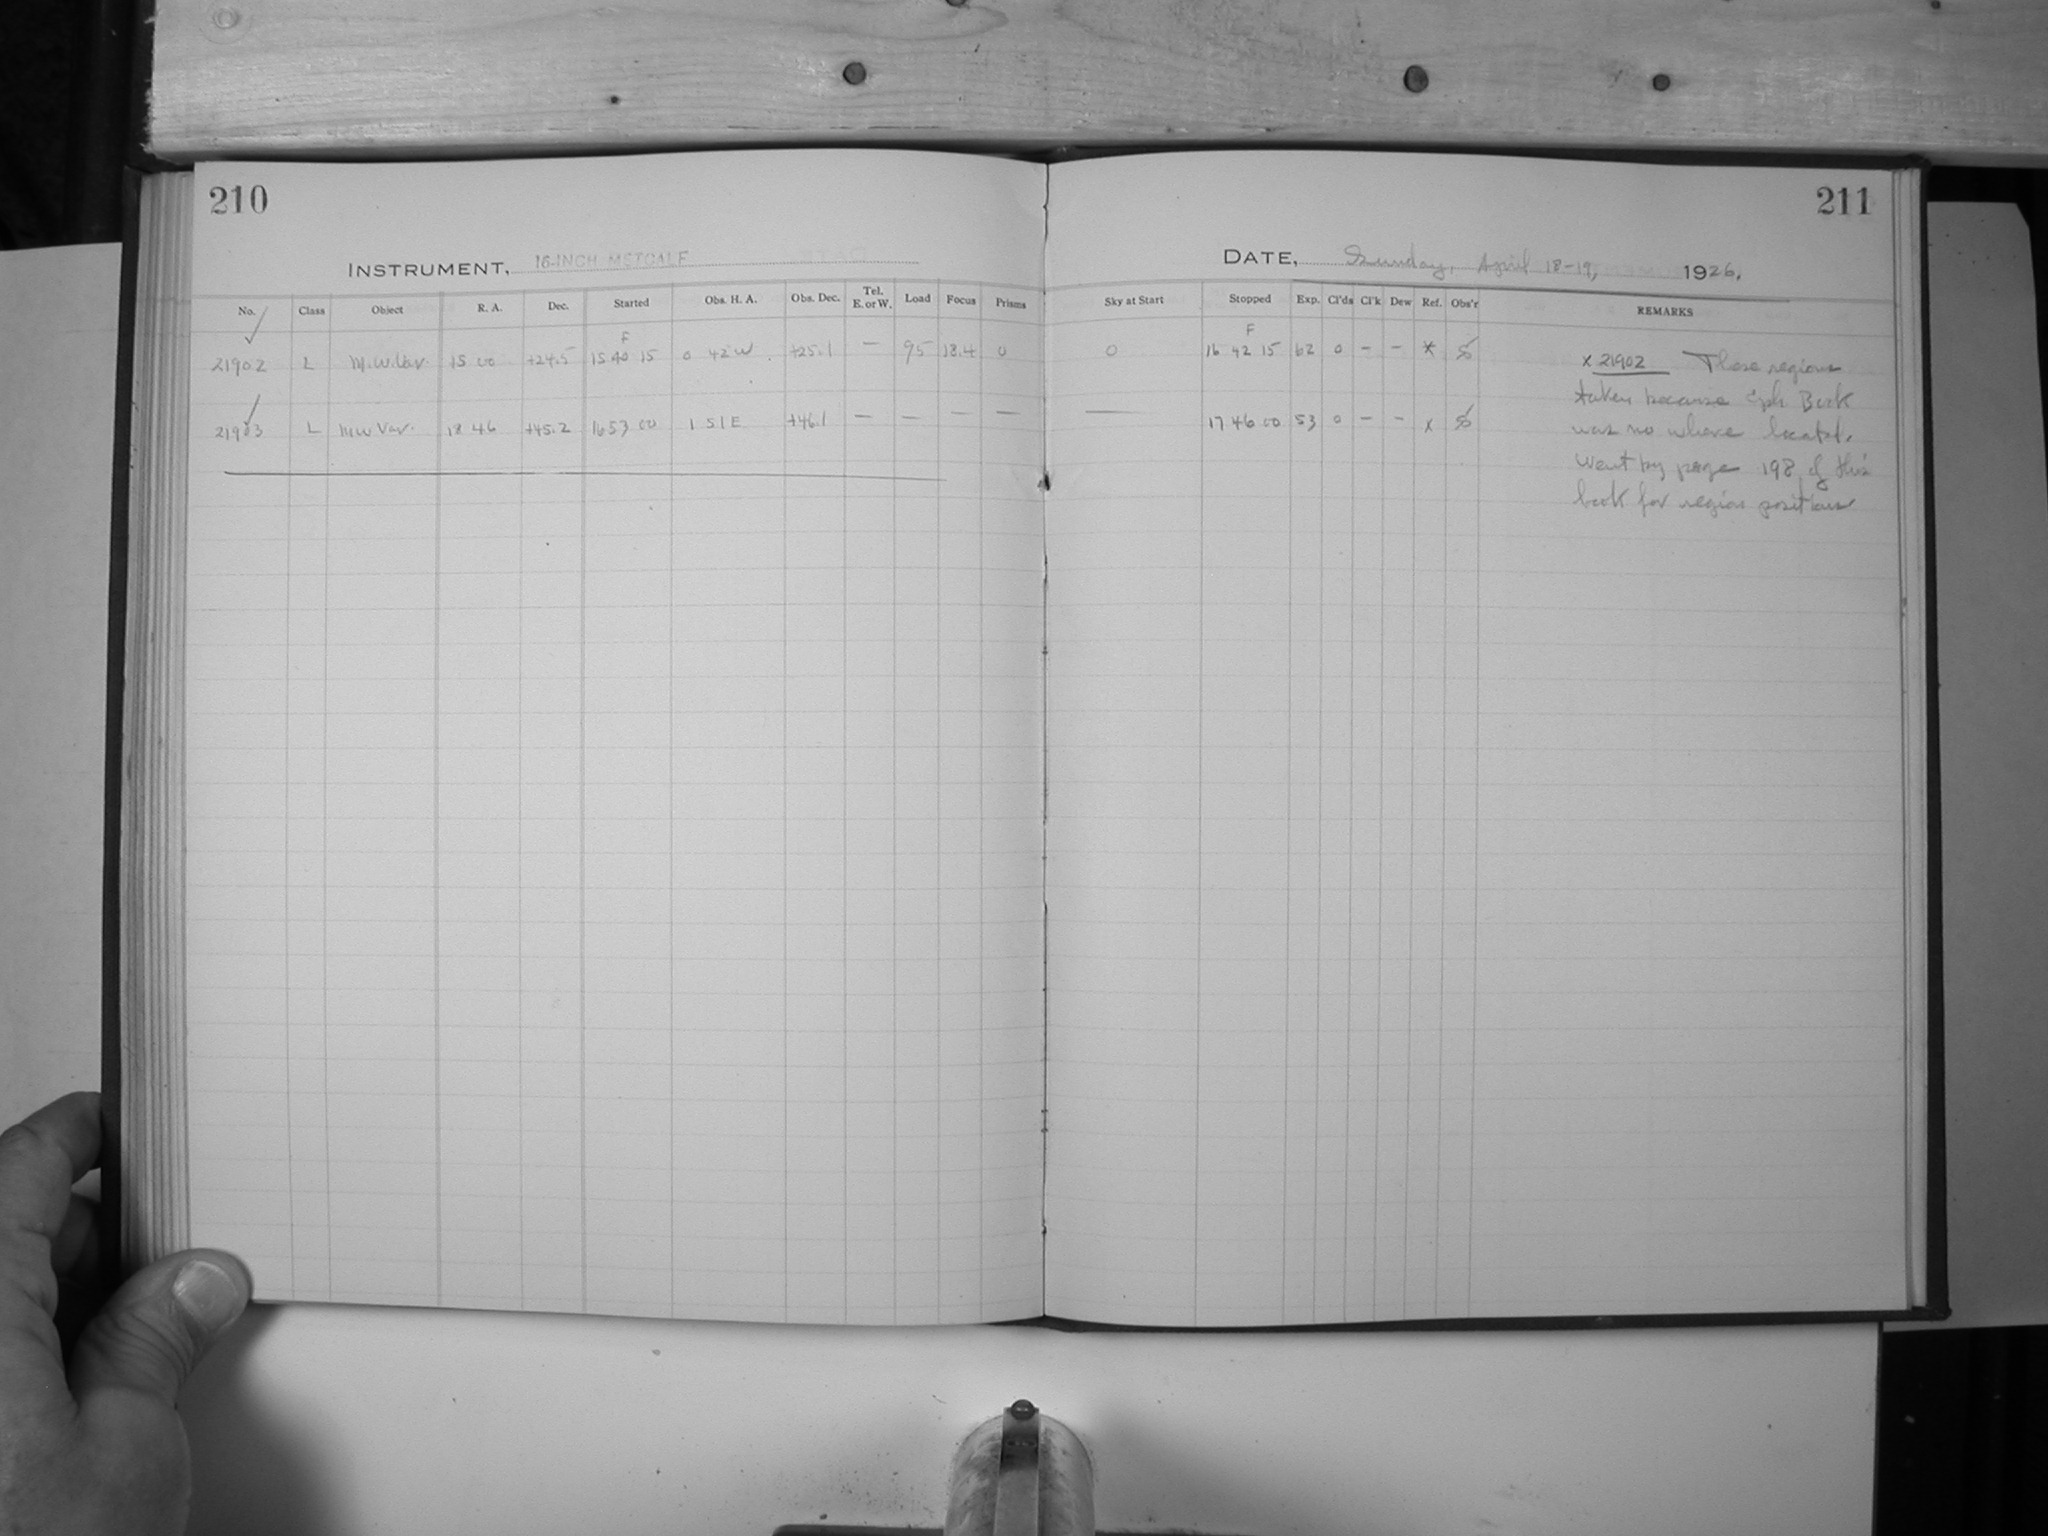 210
211
INSTRUMENT, 16-INCH METCALF
DATE, Sunday, April 18-19, 1926,
No. Class Object R. A. Dec. Started Obs. H. A. Obs. Dec. Tel. E. or W. Load Focus Prisms Sky at Start Stopped Exp. Cl'ds Cl'k Dew Ref. Obs'r REMARKS
F F
21902 L M.W.Var. 15 00 +24.5 15 40 15 0 42 W +25.1 — 95 18.4 0 0 16 42 15 62 0 - - *
21903 L MW Var. 18 46 +45.2 16 53 00 1 51 E +46.1 — — — — — 17 46 00 53 0 - - x
x 21902 These regions
taken because Eph. Book
was no where located.
Went by page 198 of this
book for region positions